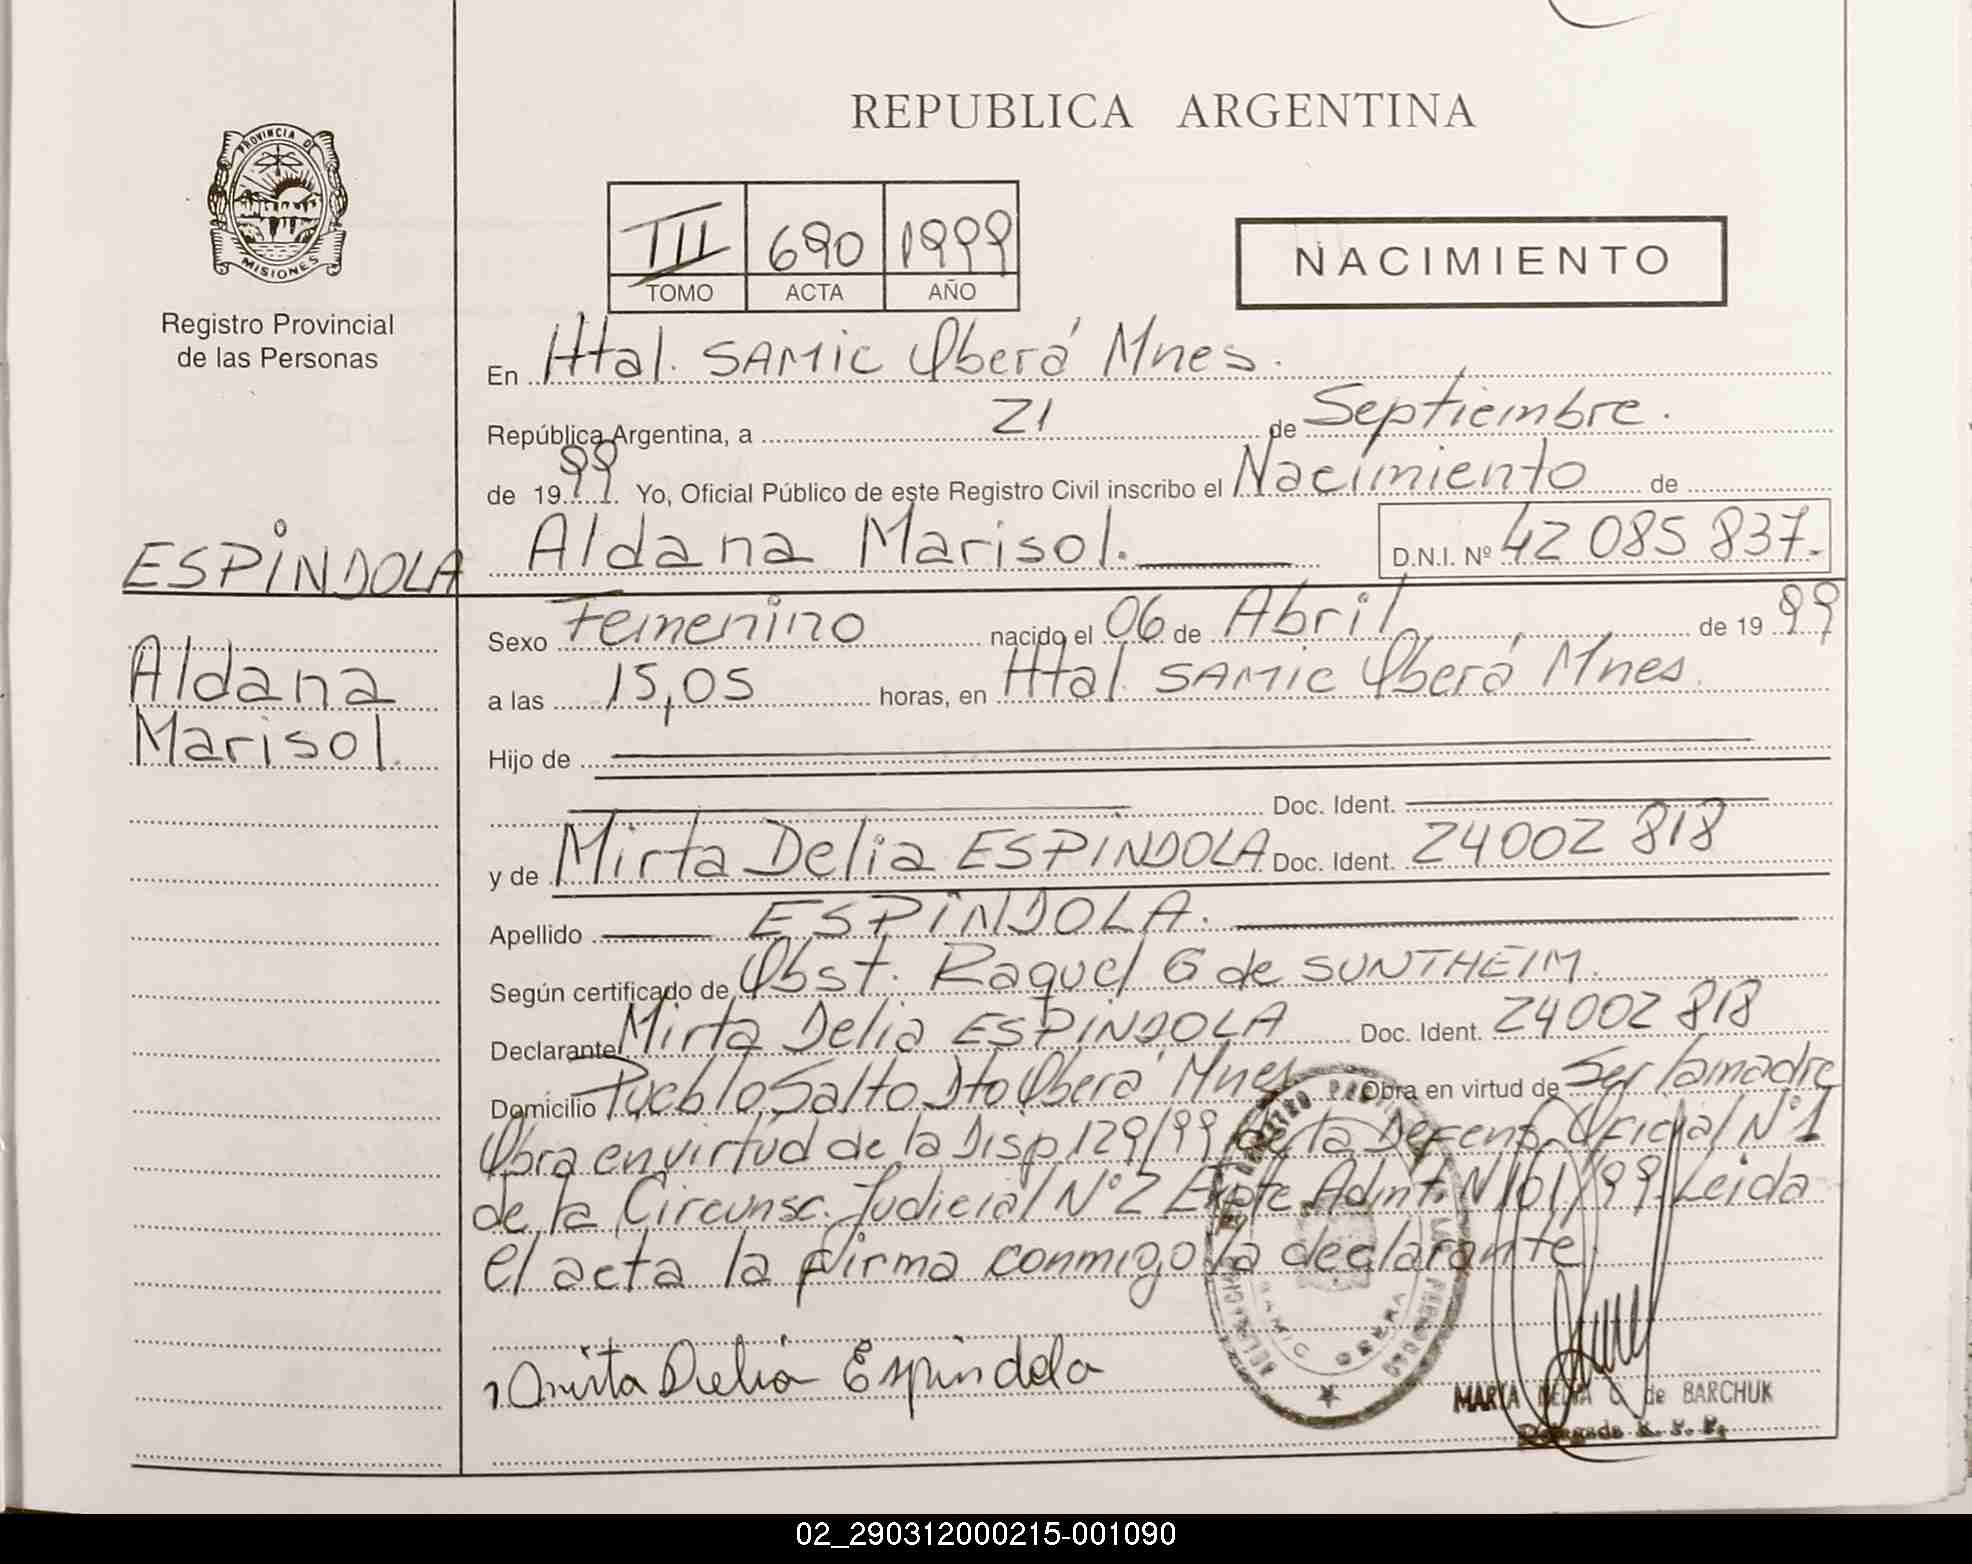 REPUBLICA ARGENTINA
PROVINCIA DE
MISIONES
Registro Provincial
de las Personas
III 690 1999
TOMO ACTA AÑO
NACIMIENTO
En Htal. SAMIC Oberá Mnes.
República Argentina, a 21 de Septiembre.
de 1999. Yo, Oficial Público de este Registro Civil inscribo el Nacimiento de
ESPINDOLA
Aldana Marisol. D.N.I. Nº 42 085 837.
Aldana
Marisol.
Sexo Femenino nacido el 06 de Abril de 1999
a las 15,05 horas, en Htal. SAMIC Oberá Mnes.
Hijo de
Doc. Ident.
y de Mirta Delia ESPINDOLA Doc. Ident. 24002 818
Apellido ESPINDOLA.
Según certificado de Obst. Raquel G de SUNTHEIM.
Declarante Mirta Delia ESPINDOLA Doc. Ident. 24002 818
Domicilio Pueblo Salto Dto Oberá Mnes Obra en virtud de Ser la madre
Obra en virtud de la Disp 129/99 de la Defens. Oficial Nº1
de la Circunsc. Judicial Nº2 Expte Admt. N 101/99. Leida
el acta la firma conmigo la declarante.
Mirta Delia Espindola
OBERA
MARTA DELIA C de BARCHUK
Delegada R. P. P.
02_290312000215-001090